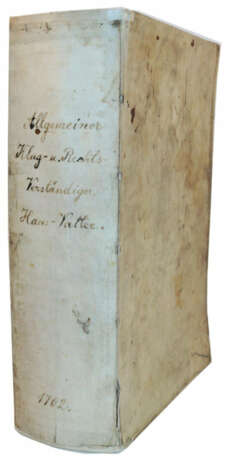 Allgemeiner
Klug- u. Rechts-
Verständiger
Haus-Vatter.
1702.